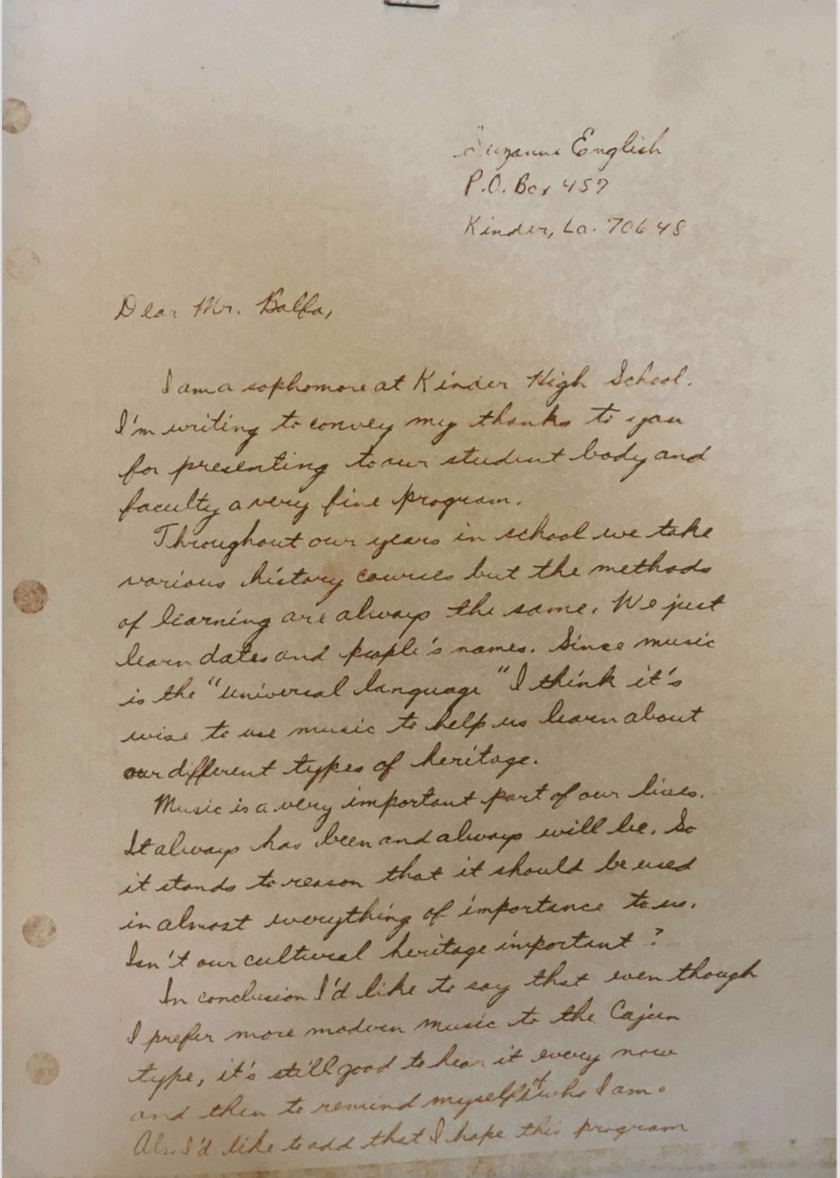 Suzanne English
P.O. Box 457
Kinder, La. 70648
Dear Mr. Balfa,
I am a sophomore at Kinder High School.
I'm writing to convey my thanks to you
for presenting to our student body and
faculty a very fine program.
Throughout our years in school we take
various history courses but the methods
of learning are always the same. We just
learn dates and people's names. Since music
is the "universal language" I think it's
wise to use music to help us learn about
our different types of heritage.
Music is a very important part of our lives.
It always has been and always will be. So
it stands to reason that it should be used
in almost everything of importance to us.
Isn't our cultural heritage important?
In conclusion I'd like to say that even though
I prefer more modern music to the Cajun
type, it's still good to hear it every now
and then to remind myself of who I am.
Also I'd like to add that I hope this program